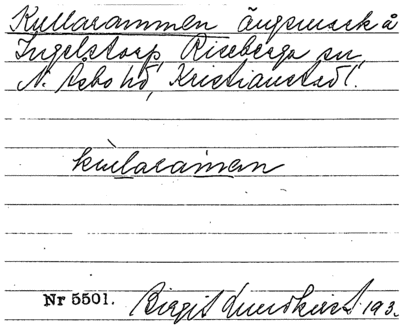 Kullarammen ängsmark å
Ingelstorp Riseberga sn
N. Åsbo hd, Kristianstad l.
kullaramən
Nr 5501. Birgit Lundkvist 193